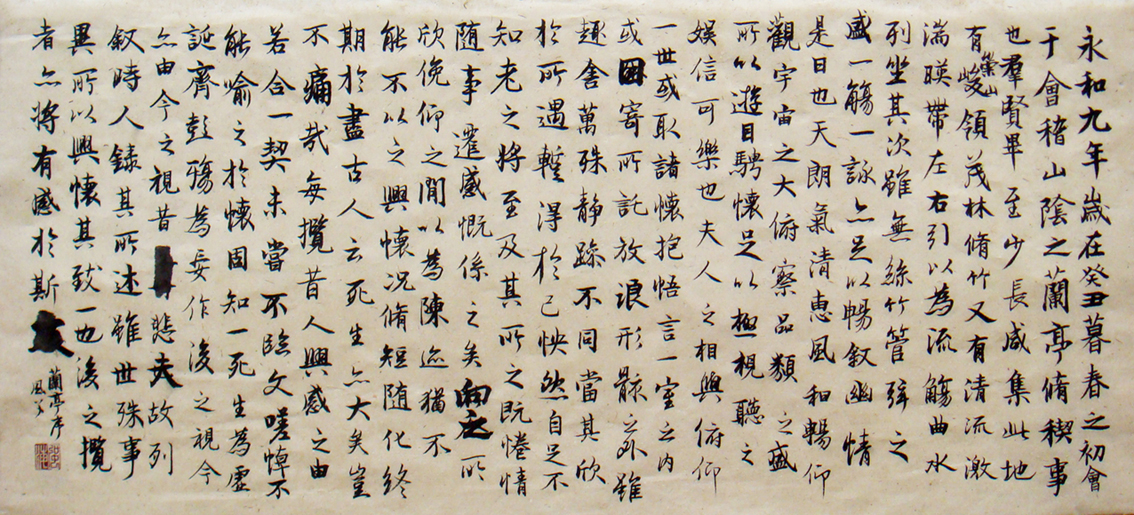 永和九年歲在癸丑暮春之初會
于會稽山陰之蘭亭脩稧事
也羣賢畢至少長咸集此地
有崇山峻領茂林脩竹又有清流激
湍暎帶左右引以為流觴曲水
列坐其次雖無絲竹管弦之
盛一觴一詠亦足以暢叙幽情
是日也天朗氣清惠風和暢仰
觀宇宙之大俯察品類之盛
所以遊目騁懷足以極視聽之
娛信可樂也夫人之相與俯仰
一世或取諸懷抱悟言一室之內
或因寄所託放浪形骸之外雖
趣舍萬殊靜躁不同當其欣
於所遇蹔得於己怏然自足不
知老之將至及其所之既惓情
隨事遷感慨係之矣向之所
欣俛仰之閒以為陳迹猶不
能不以之興懷況脩短隨化終
期於盡古人云死生亦大矣豈
不痛哉每攬昔人興感之由
若合一契未嘗不臨文嗟悼不
能喻之於懷固知一死生為虛
誕齊彭殤為妄作後之視今
亦由今之視昔悲夫故列
叙時人錄其所述雖世殊事
異所以興懷其致一也後之攬
者亦將有感於斯文
蘭亭序